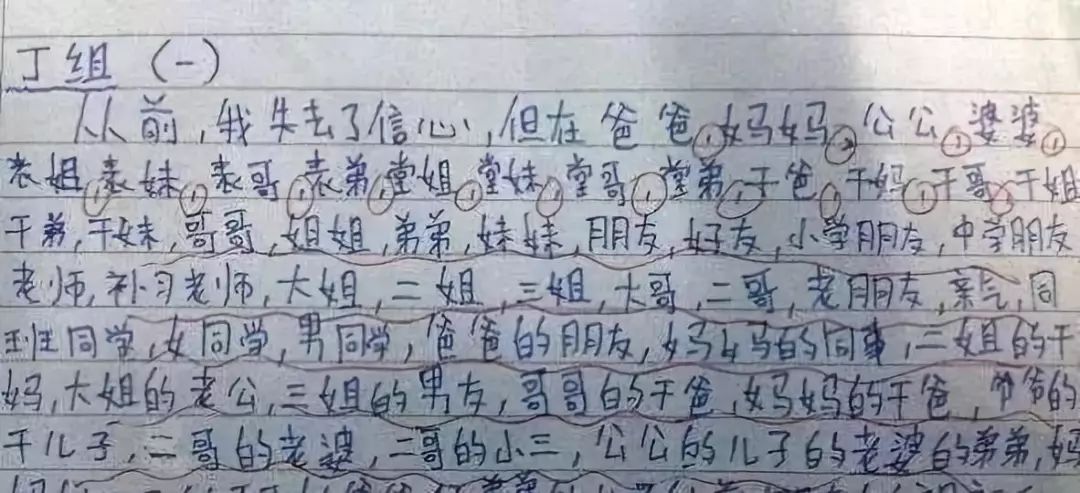 丁组(一)
从前,我失去了信心,但在爸爸,妈妈,公公,婆婆,
表姐,表妹,表哥,表弟,堂姐,堂妹,堂哥,堂弟,干爸,干妈,干哥,干姐
干弟,干妹,哥哥,姐姐,弟弟,妹妹,朋友,好友,小学朋友,中学朋友
老师,补习老师,大姐,二姐,三姐,大哥,二哥,老朋友,亲气,同
性同学,女同学,男同学,爸爸的朋友,妈妈的同事,二姐的干
妈,大姐的老公,三姐的男友,哥哥的干爸,妈妈的干爸,爷爷的
干儿子,二哥的老婆,二哥的小三,公公的儿子的老婆的弟弟,妈